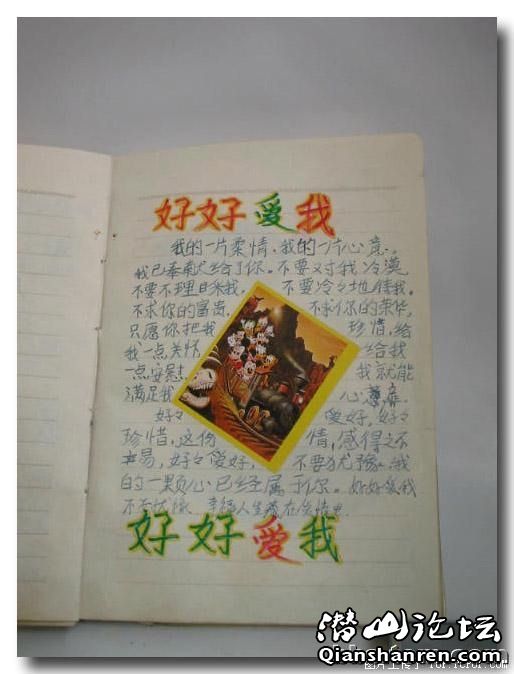 好好爱我
我的一片柔情、我的一片心意、
我已奉献给了你。不要对我冷漠
不要不理日来我, 不要冷冷地待我。
不求你的富贵, 不求你的荣华,
只愿你把我 珍惜,给
我一点关怀 给我
一点安慰 我就能
满足我 心意
好々 爱好,好々
珍惜,这份 情,感得之不
易,好々爱好, 不要犹豫、我
的一颗心已经属于你。好好爱我
好好爱我
潜山论坛
Qianshanren.com